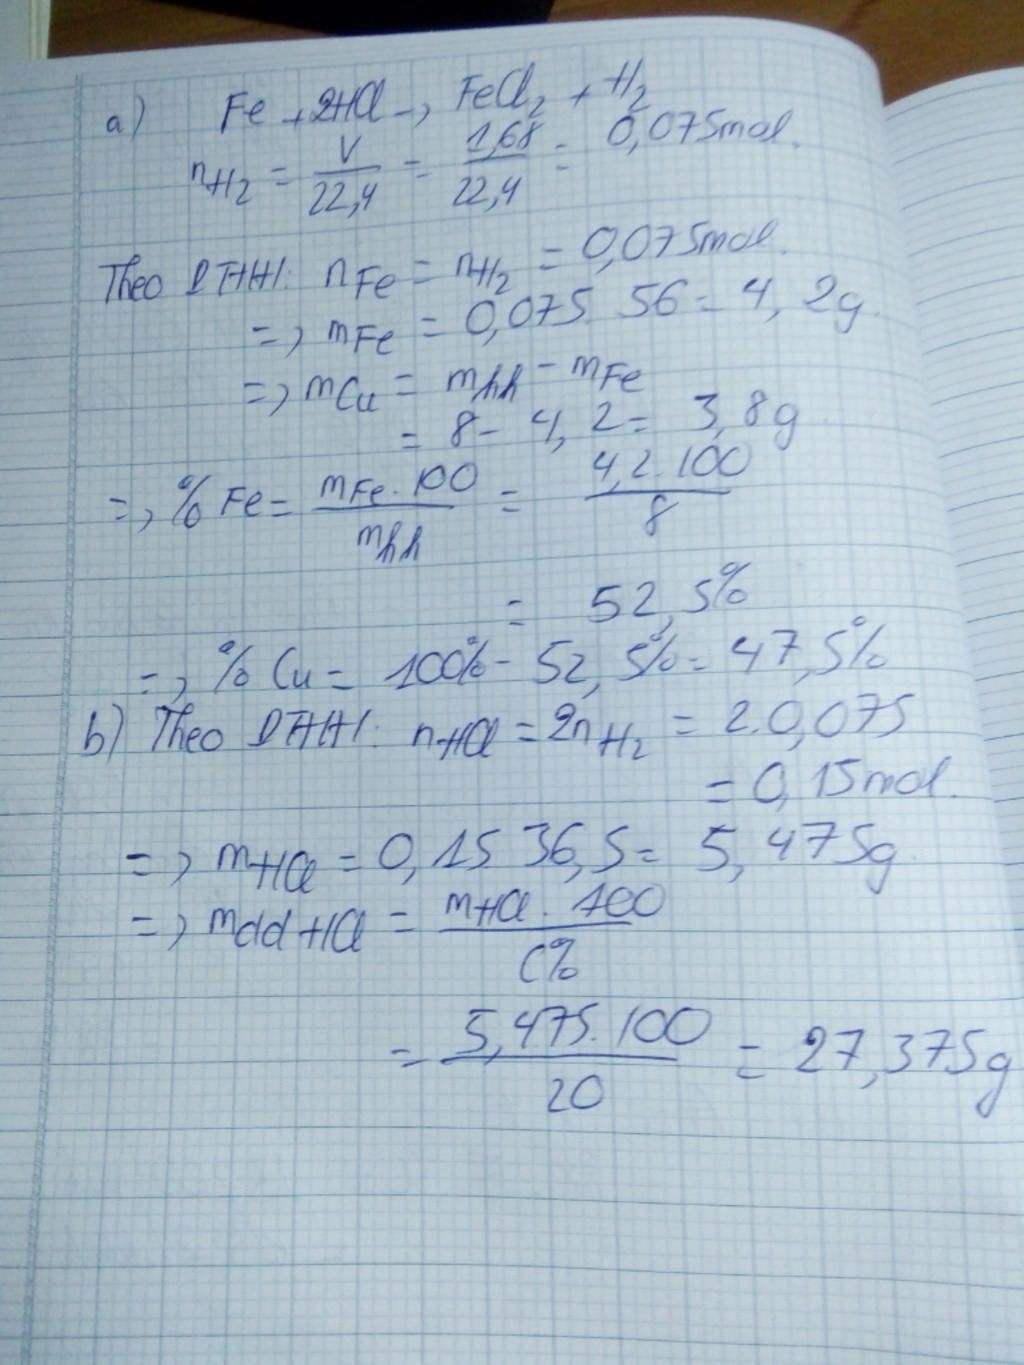 a) Fe + 2HCl -> FeCl2 + H2
nH2 = V/22,4 = 1,68/22,4 = 0,075mol.
Theo DTHH: nFe = nH2 = 0,075mol.
=> mFe = 0,075. 56 = 4,2g.
=> mCu = mhh - mFe
= 8 - 4,2 = 3,8g
=> %Fe = mFe.100/mhh = 4,2.100/8
= 52,5%
=> %Cu = 100% - 52,5% = 47,5%
b) Theo DTHH: nHCl = 2nH2 = 2.0,075
= 0,15mol.
=> mHCl = 0,15.36,5 = 5,475g
=> mdd HCl = mHCl.100/C%
= 5,475.100/20 = 27,375g